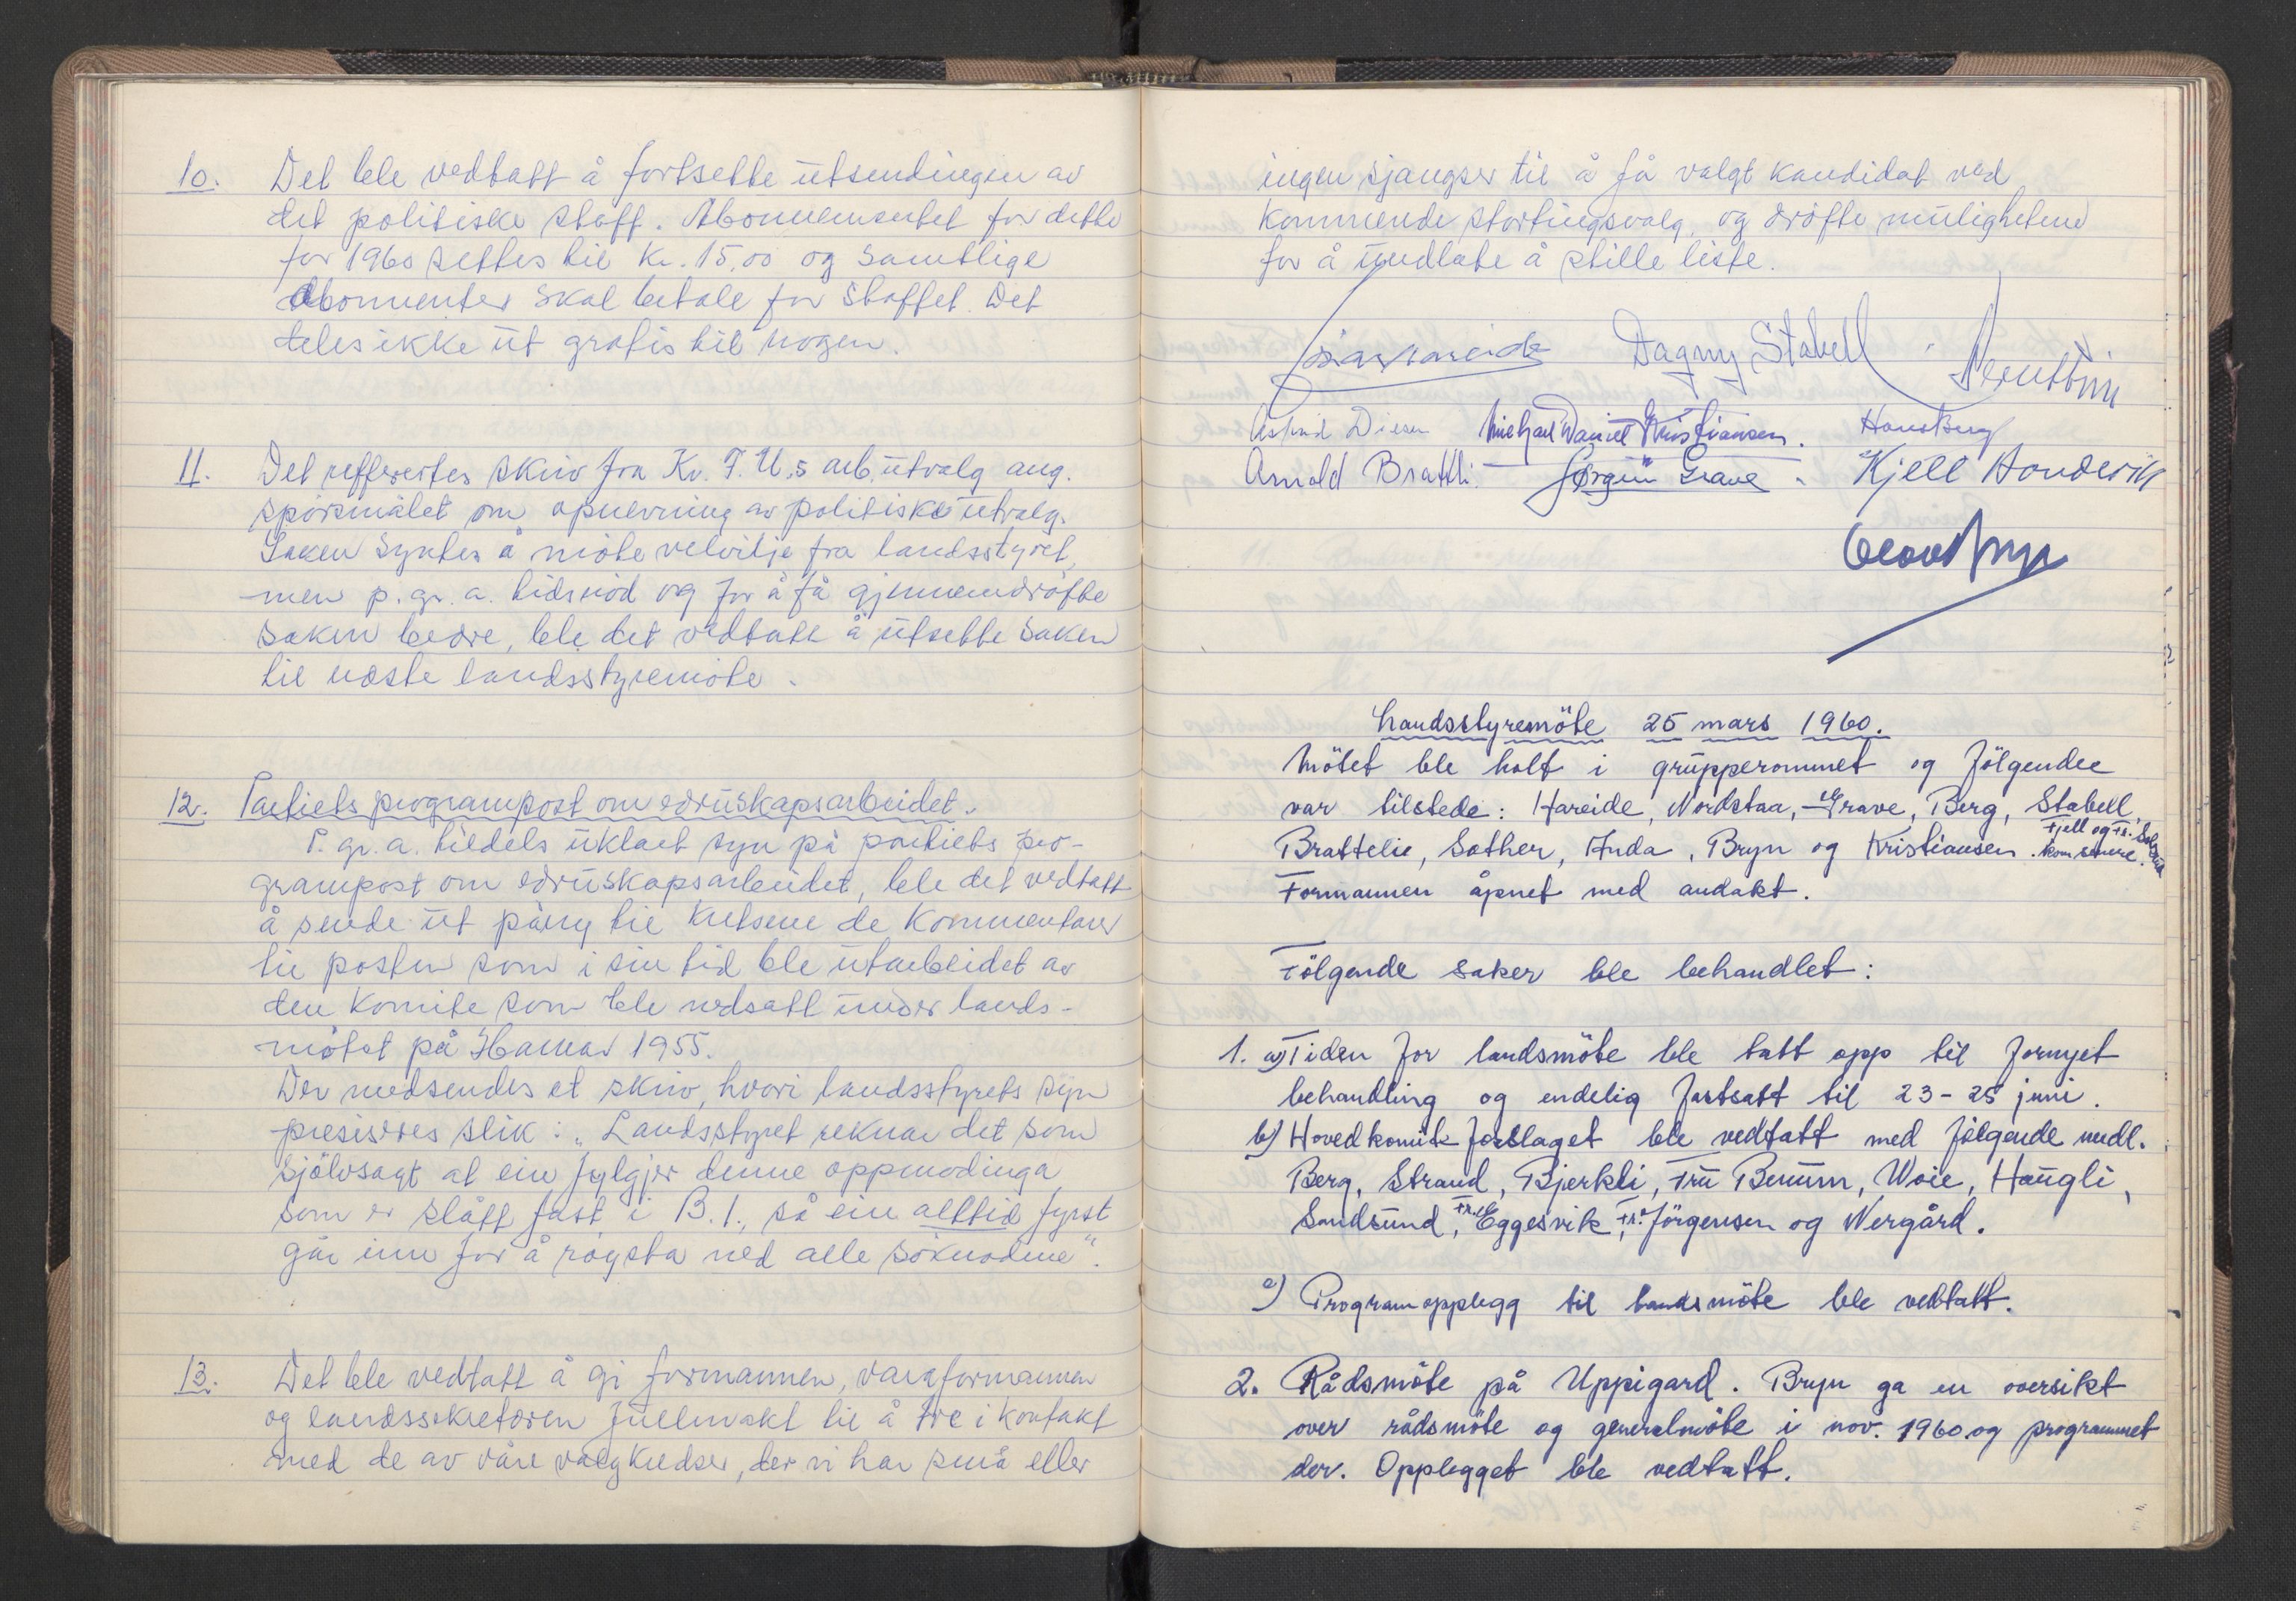 10. Det ble vedtatt å fortsette utsendingen av
det politiske stoff. Abonnementet for dette
for 1960 settes til kr. 15,00 og samtlige
abonnenter skal betale for stoffet. Det
deles ikke ut gratis til nogen.
11. Det refferertes skriv fra Kr. F. U.s arb.utvalg ang.
spörsmålet om opnevning av politiske utvalg.
Saken syntes å möte velvilje fra landsstyret,
men p. gr. a. tidsnöd og for å få gjennemdröfte
saken bedre, ble det vedtatt å utsette saken
til neste landsstyremöte.
12. Partiets programpost om edruskapsarbeidet.
P. gr. a. tildels uklart syn på partiets pro-
grampost om edruskapsarbeidet, ble det vedtatt
å sende ut påny til kretsene de kommentarer
til posten som i sin tid ble utarbeidet av
den komite som ble nedsatt under lands-
mötet på Hamar 1955.
Der medsendes et skriv, hvori landsstyrets syn
presiseres slik: „Landsstyret reknar det som
sjölvsagt at ein fylgjer denne oppmodinga
som er slått fast i B.1., så ein alltid fyrst
går inn for å röysta ned alle söknadene“.
13. Det ble vedtatt å gi formannen, varaformannen
og landssekretæren fullmakt til å tre i kontakt
med de av våre valgkredser, der vi har små eller
ingen sjangser til å få valgt kandidat ved
kommende stortingsvalg, og dröfte mulighetene
for å undlate å stille liste.
Dagny Stabell
Astrid Diesen Michael Daniel Kristiansen. Hans Berg
Arnold Brattli. Jørgen Grave. Kjell Bondevik
Olav Bryn
Landsstyremöte 25 mars 1960.
Mötet ble holt i grupperommet og fölgende
var tilstede: Hareide, Nordstaa, Grave, Berg, Stabell,
Brattelie, Sæther, Anda, Bryn og Kristiansen. Fjell og Fr. kom senere.
Formannen åpnet med andakt.
Fölgende saker ble behandlet:
1. a) Tiden for landsmöte ble tatt opp til fornyet
behandling og endelig fastsatt til 23 - 25 juni.
b) Hovedkomite forslaget ble vedtatt med fölgende medl.
Berg, Strand, Bjerkli, Fru Benum, Woie, Haugli,
Sandsund, Fr. Eggesvik, Fr. Jörgensen og Nergård.
c) Programopplegg til landsmöte ble vedtatt.
2. Rådsmöte på Uppigard. Bryn ga en oversikt
over rådsmöte og generalmöte i nov. 1960 og programmet
der. Opplegget ble vedtatt.